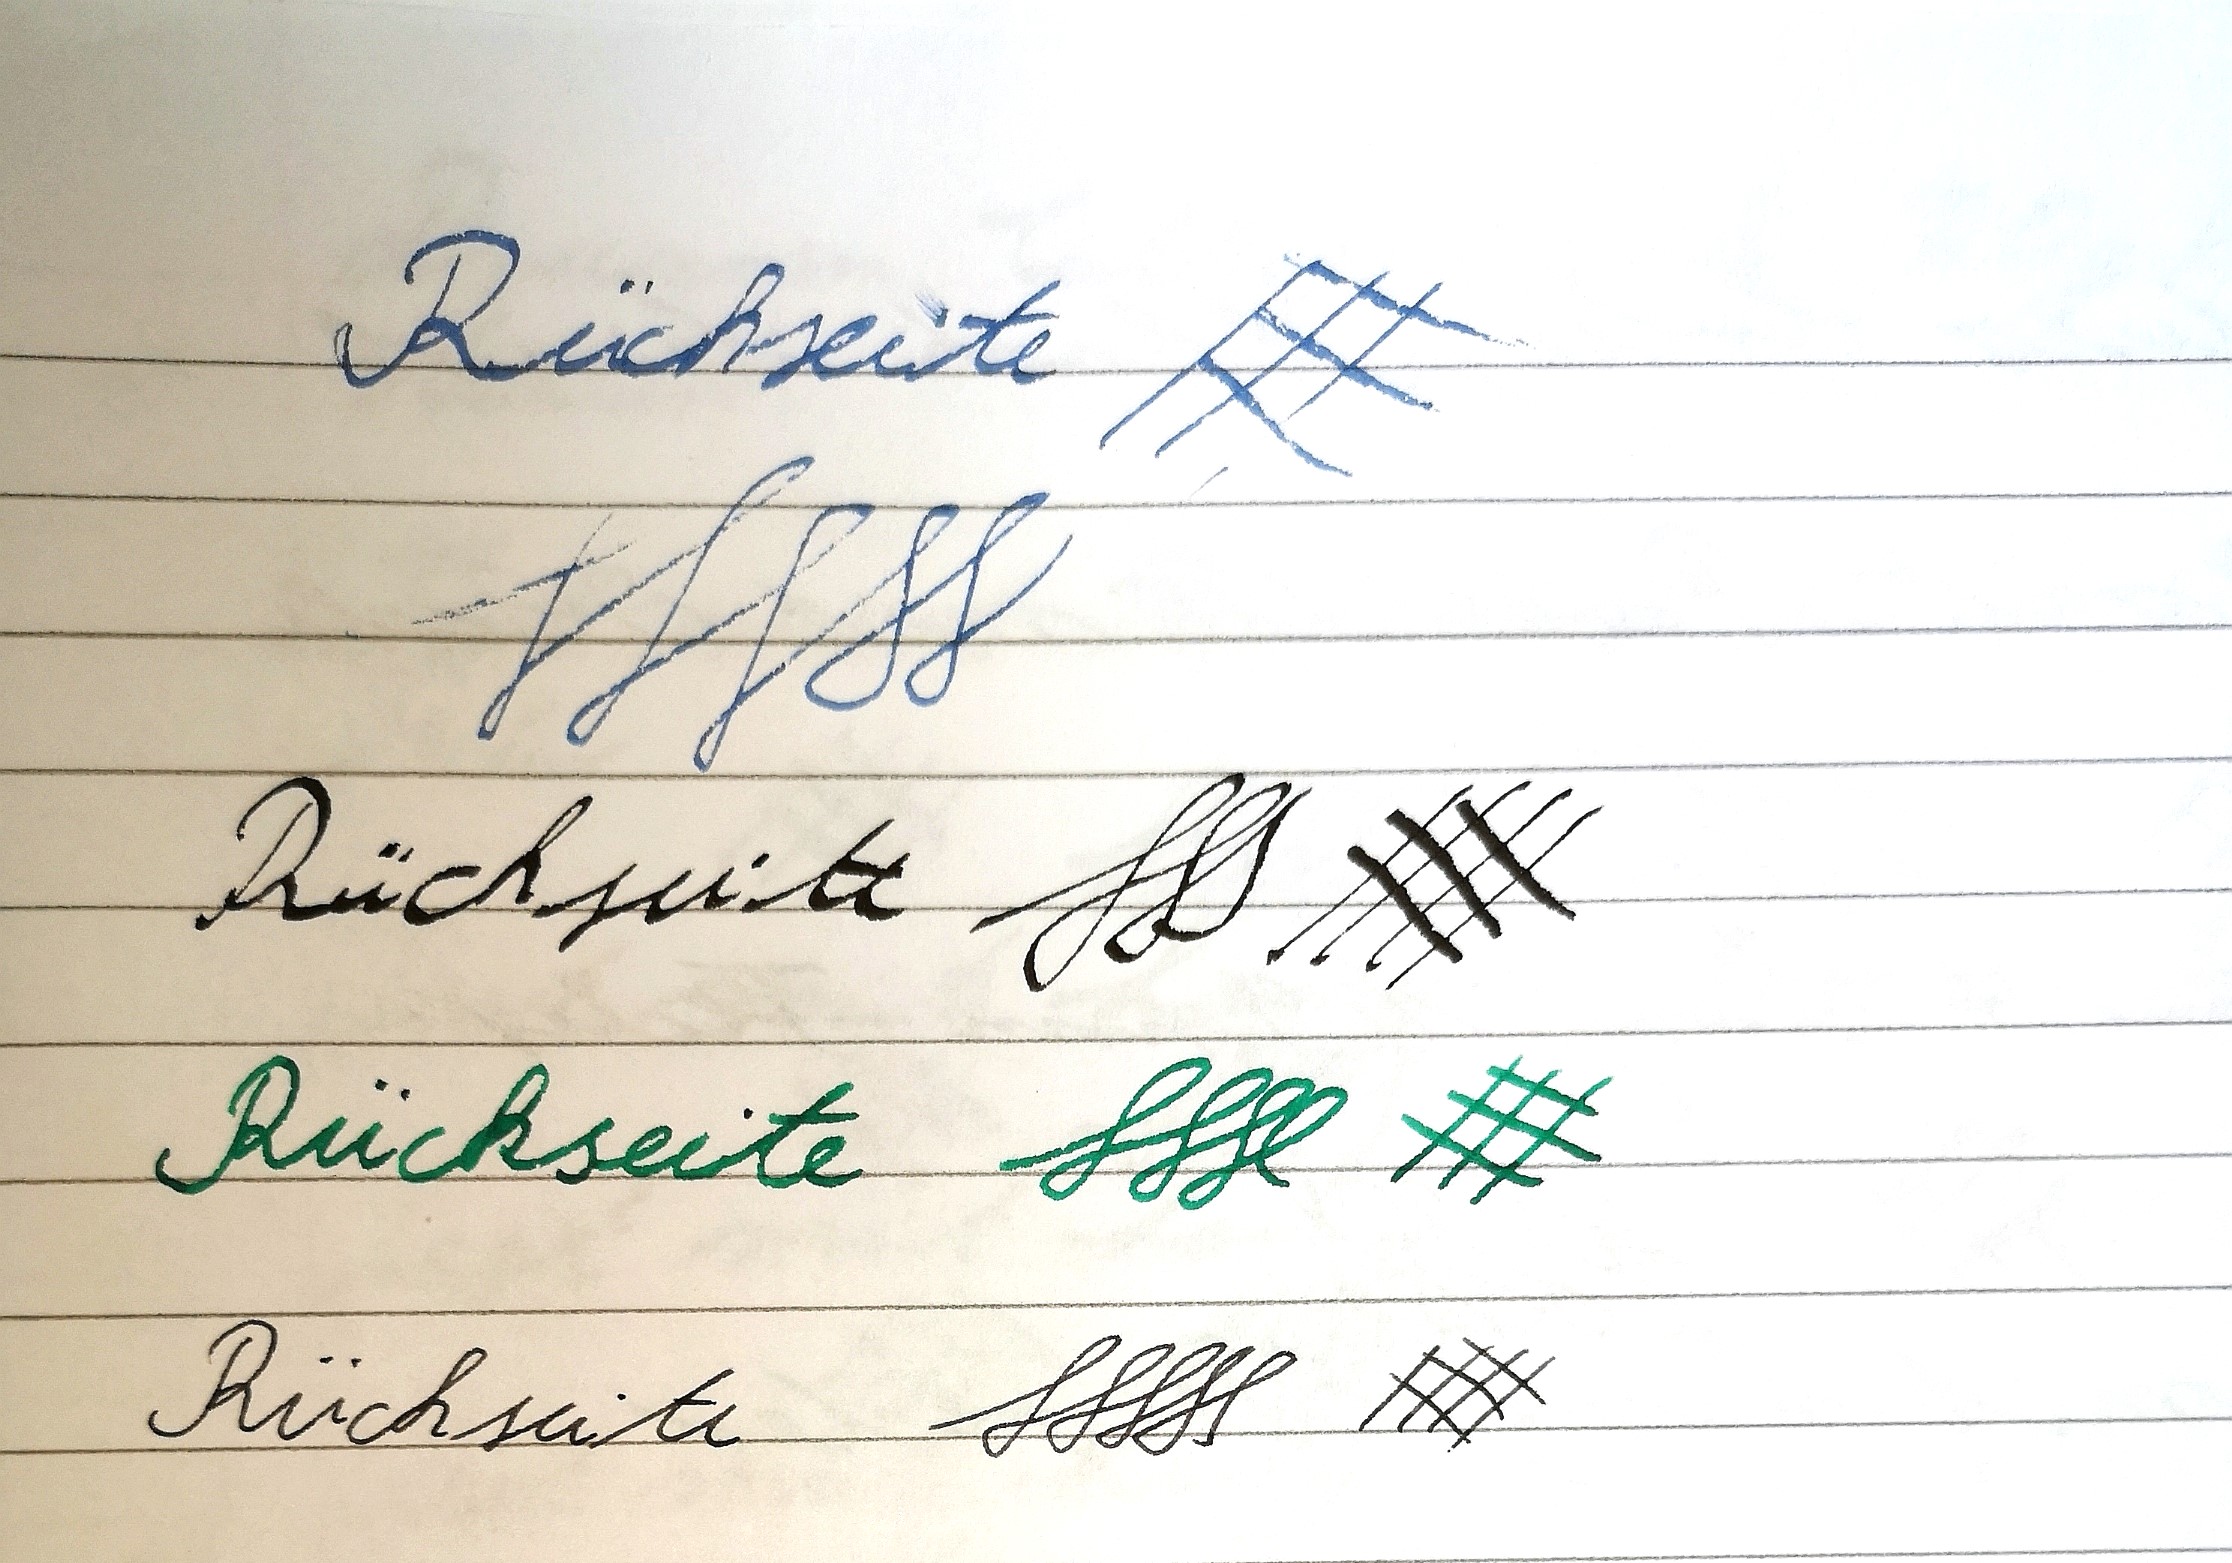 Rückseite
Rückseite
Rückseite
Rückseite